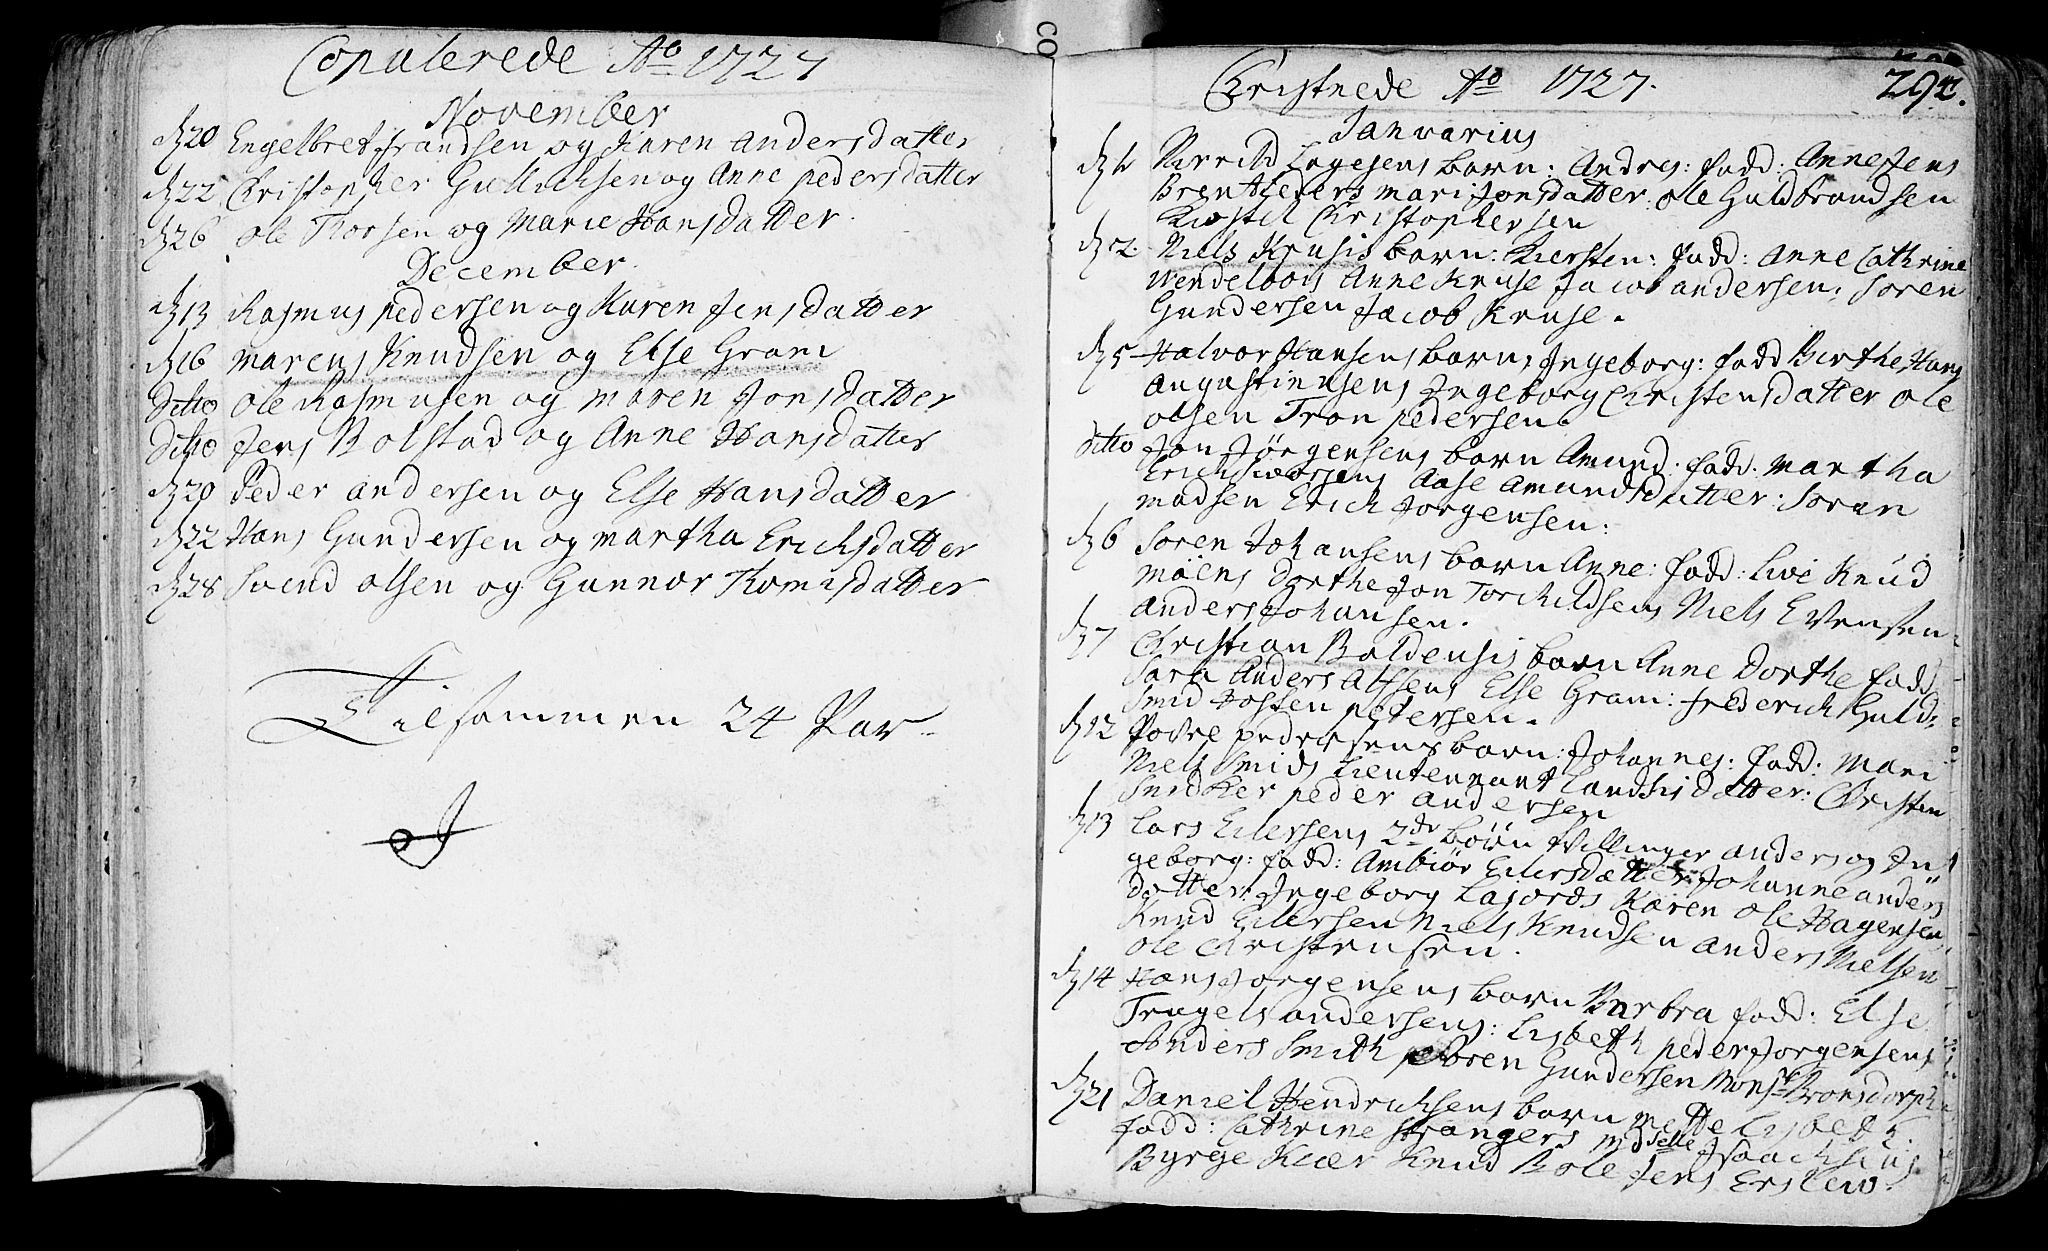 Copulerede Aº 1727
November
dȷ 20 Engelbret frandsen og Karen Andersdatter
dȷ 22 Christopher Gullichsen og Anne pedersdatter
dȷ 26 ole Thorsen og Marie Hansdatter
December
dȷ 13 Rasmus pedersen og Karen Jensdatter
dȷ 16 marcus Knudsen og Else Gram
Ditto ole Rasmusen og maren Jonsdatter
Ditto Jens Bolstad og Anne Hansdatter
dȷ 20 Peder andersen og Else Hansdatter
dȷ 22 Hans Gundersen og martha Ericksdatter
dȷ 28 Svend olsen og Gunnor Thomisdatter
Tilsammen 24 Par
Christnede Aº 1727.
Janvarius
dȷ 1 Lagesens barn: Andres: fadd: Anne Jens
mari Jonsdatter: ole Guldbrandsen
Kiostel Christophersen
dȷ 2. Niels Krusis barn: Kiersten: fadd: Anne Cathrine
Wendelbois Anne Kruse Jacob andersen, Soren
Gundersen Jacob Kruse.
dȷ 5 Halvor Hansens barn, Ingeborg: fadd Birthe Hans
Augustinusens Ingeborg Christensdatter ole
olsen Tron pedersen
Ditto Jon Jörgensens barn Amund: fadd. martha
Erich Aase Amundsdatter: Soren
madsen Erich Jorgensen:
dȷ 6 Soren Johansens barn Anne: fadd: Live Knud
möens Dorthe Jon Torchildsens Niels Evensen
anders Johansen.
dȷ 7 Christian Boldensis barn Anne Dorthe fadd
Sara Anders Alfsens Else Gram: frederich Guld-
smid Josten petersen.
dȷ 12 Povre pedersens barn: Johannes: fadd: mari
Niels Smids Lieutennant datter: Christen
Snidker peder andersen
dȷ 13 Lars Eilersens 2de börn tvillinger anders og In
geborg: fadd: Ambiör Eilersdatter: Johanne anders
datter: Ingeborg Karen ole Hagensen
Knud Eilersen Niels Knudsen anders Nielsen
ole Christensen.
dȷ 14 Hans Jorgensens barn Barbra fadd: Else
Trugels andersens: Lisbeth peder Jorgensens
Anders Smith Soren Gundersen Monsr Bronsdorph
dȷ 21 Daniel Hendrichsens barn mette Lisbeth.
fadd: Cathrine Strangers madselle Isaachsens
Byrge Kier Knud Bole Jens Erslew.